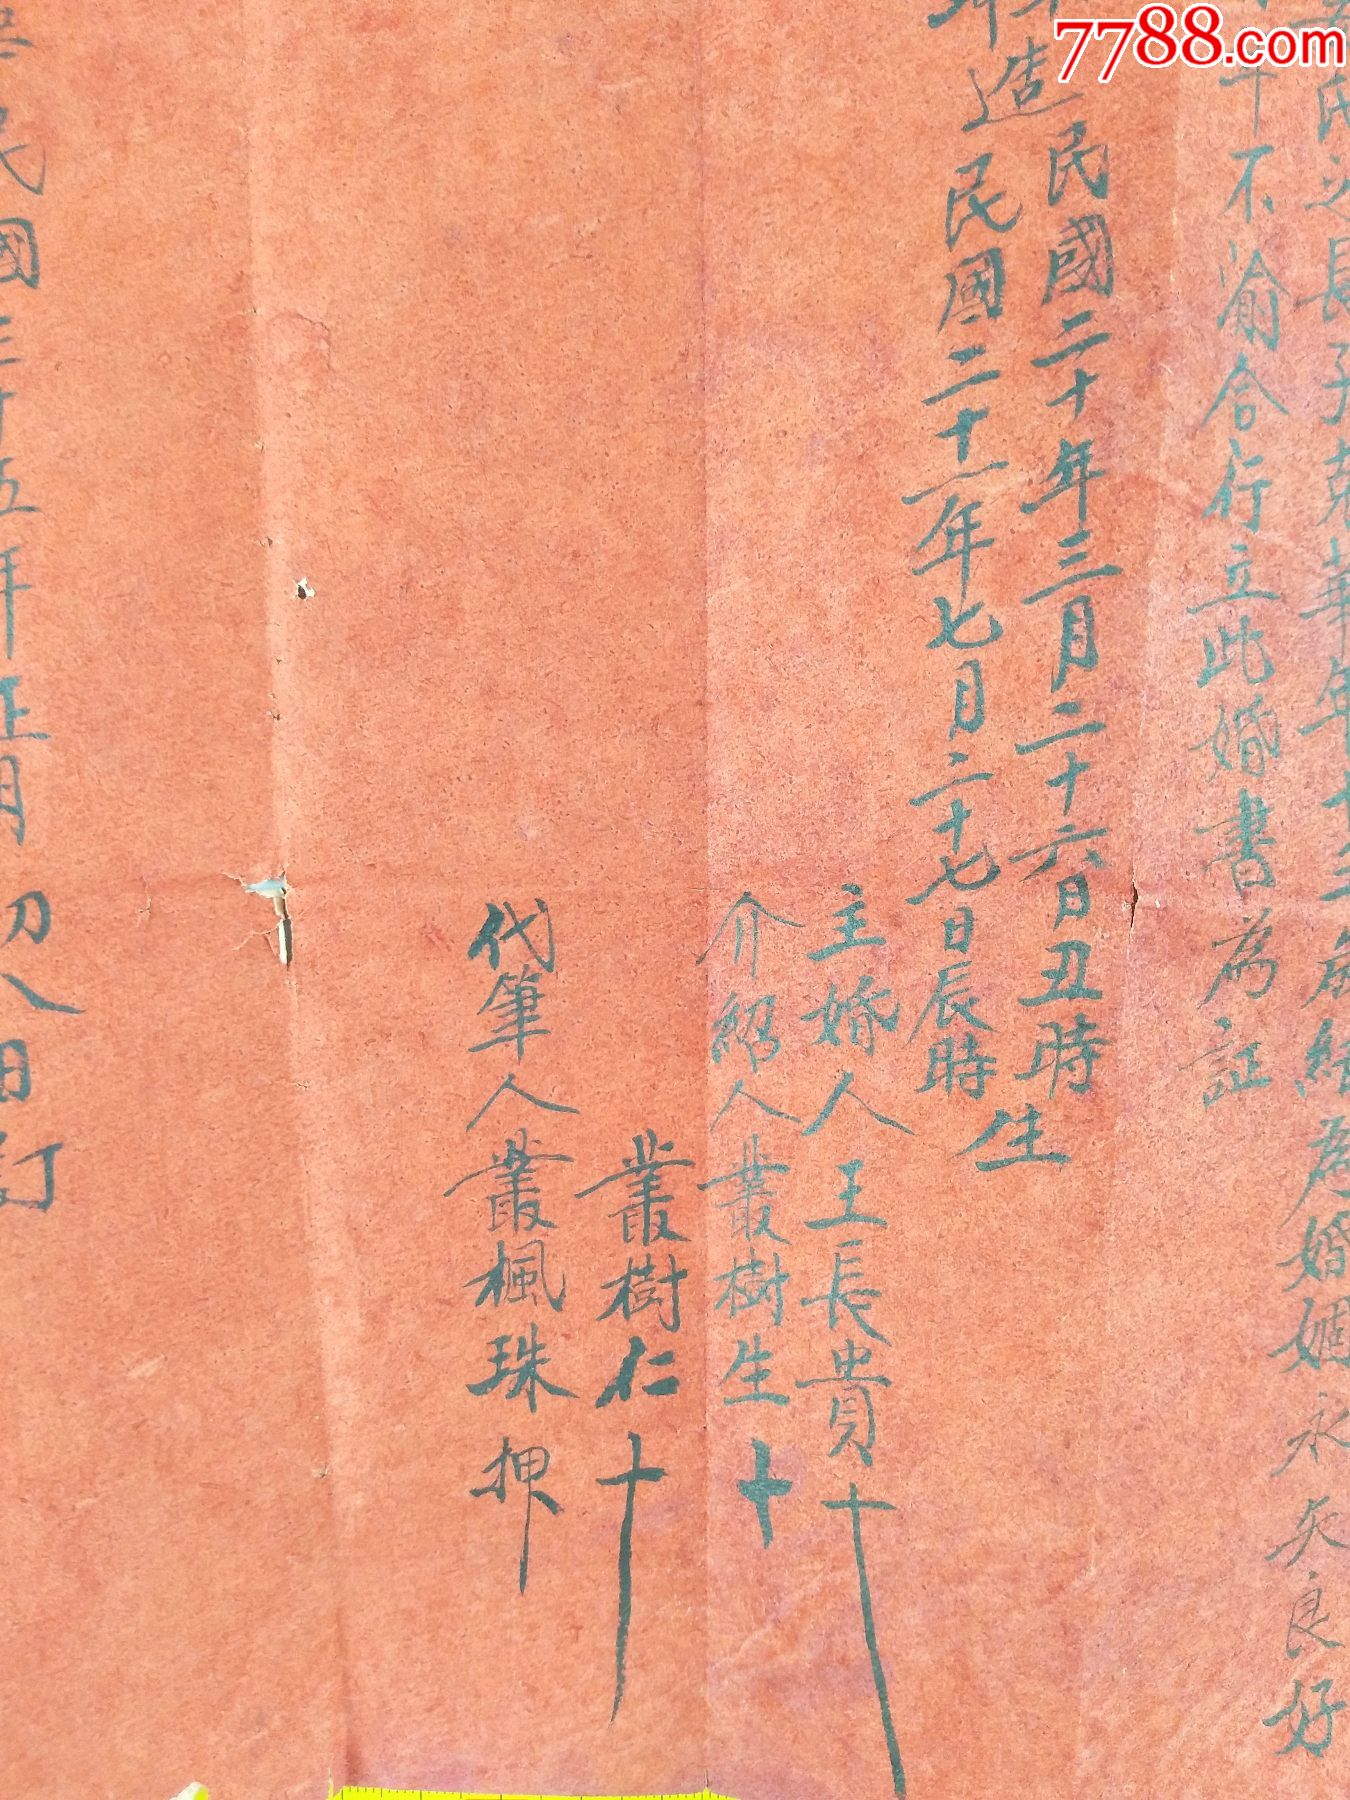 7788.com
氏之長子克華年十三歲結為婚姻永矢良好
年不渝合行立此婚書為証
造民國二十年三月二十六日丑時
造民國二十一年七月二十七日辰時
生
主婚人王長貴十
介紹人叢樹生十
叢樹仁十
代筆人叢楓珠押
民國三十五年正月初八日訂